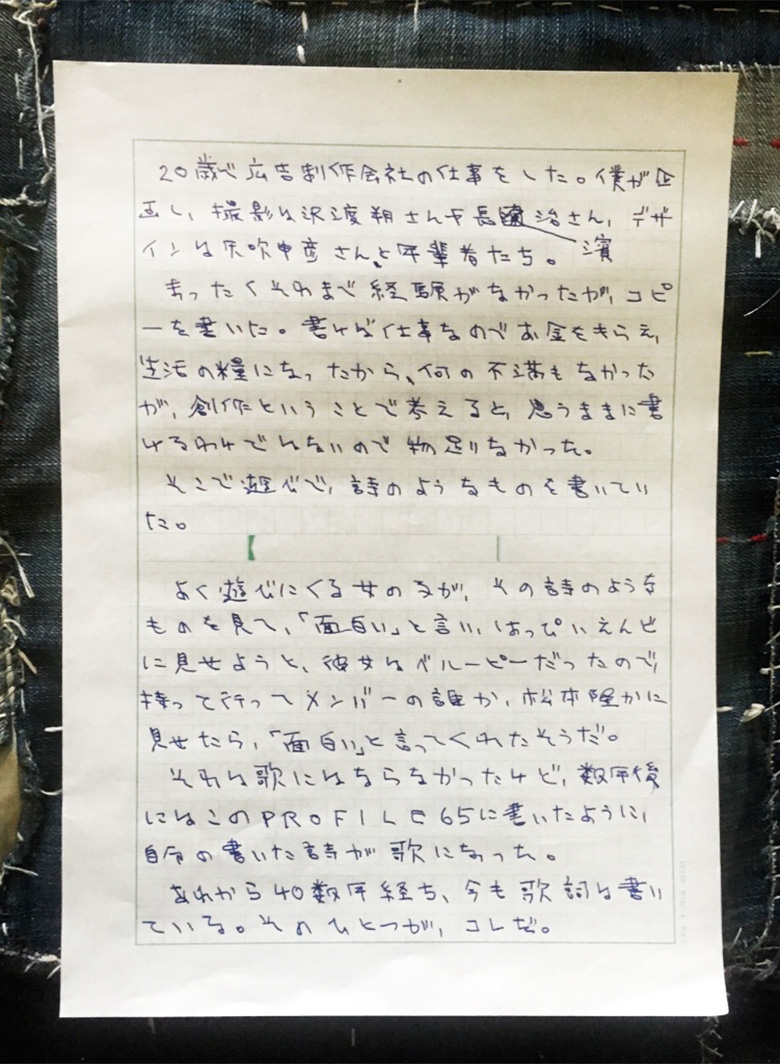 20歳で広告制作会社の仕事をした。僕が企
画し、撮影は沢渡朔さんや長濱治さん、デザ
インは矢吹申彦さん、と年輩者たち。
まったくそれまで経験がなかったが、コピ
ーを書いた。書けば仕事なのでお金をもらえ、
生活の糧になったから、何の不満もなかった
が、創作ということで考えると、思うままに書
けるわけではないので物足りなかった。
そこで遊びで、詩のようなものを書いてい
た。
よく遊びにくる女の子が、その詩のような
ものを見て、「面白い」と言い、はっぴいえんど
に見せようと、彼女はベルーピーだったので、
持って行ってメンバーの誰か、松本隆かに
見せたら、「面白い」と言ってくれたそうだ。
それは歌にはならなかったけど、数年後
にはこのPROFILE65に書いたように、
自分の書いた詩が歌になった。
あれから40数年経ち、今も歌詞は書い
ている。そのひとつが、コレだ。